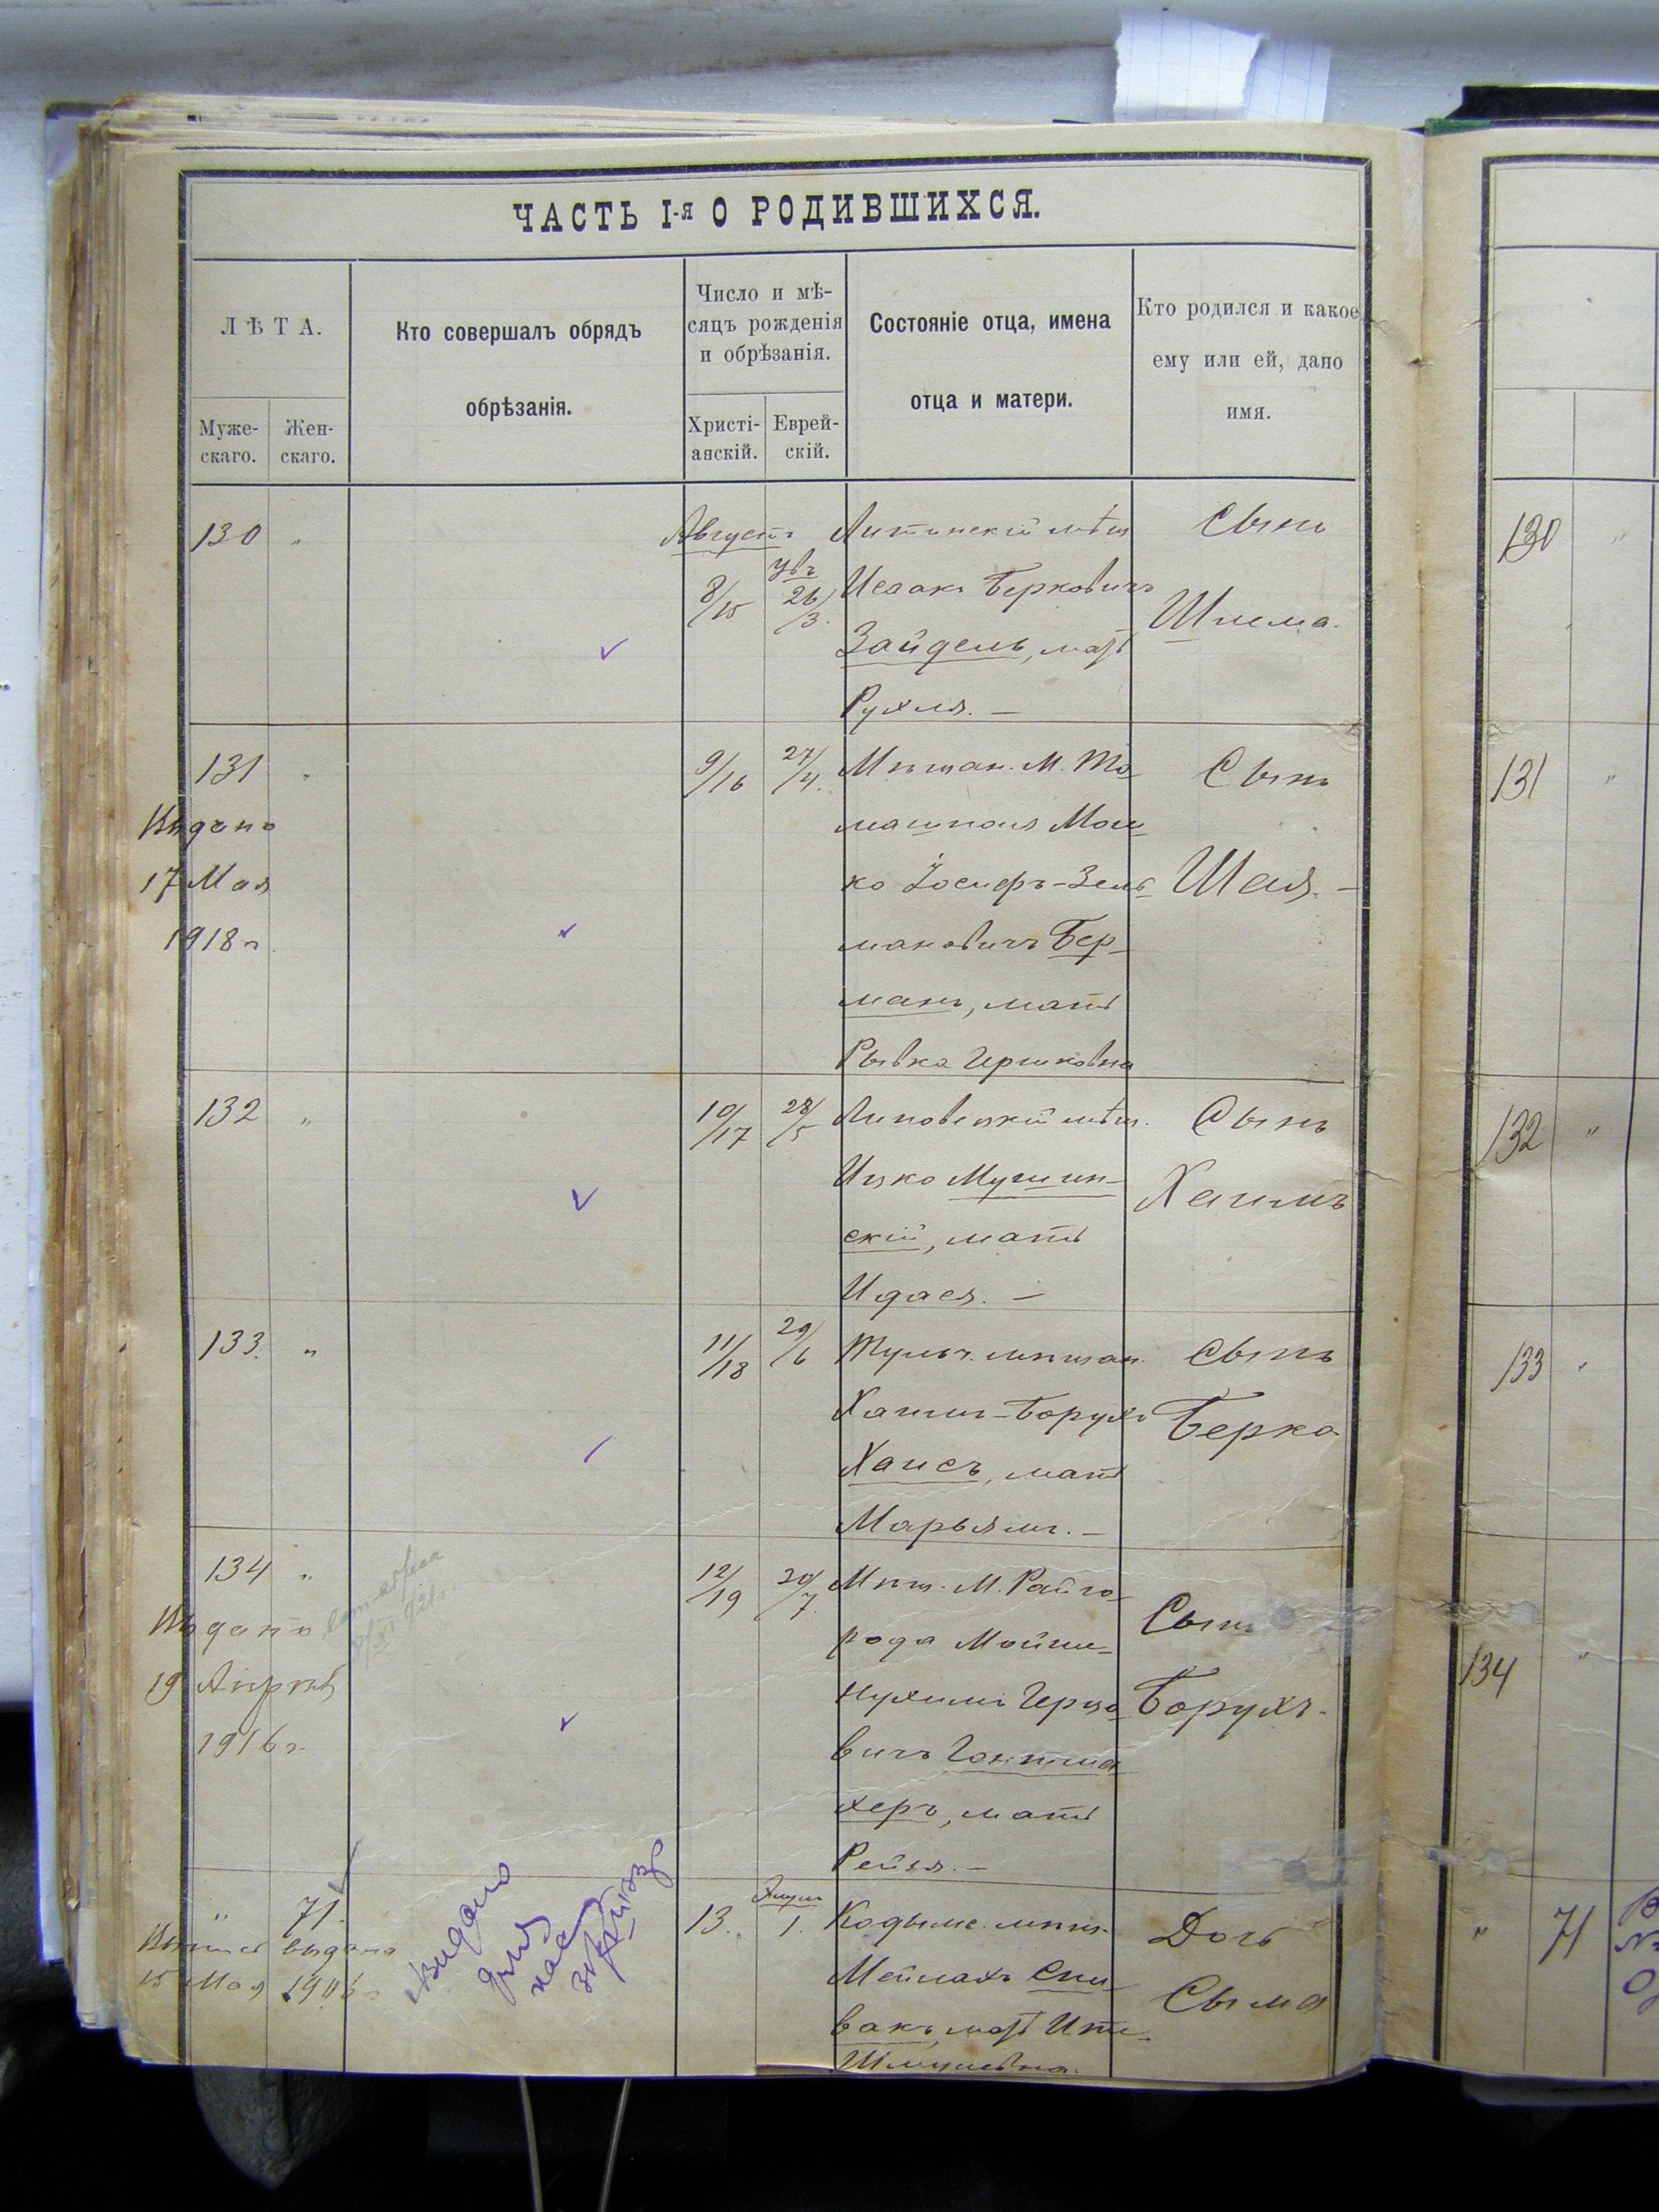 ЧАСТЬ I-я О РОДИВШИХСЯ.
ЛѢТА.
Муже-
скаго.
Жен-
скаго.
Кто совершалъ обрядъ
обрѣзанія.
Число и мѣ-
сяцъ рожденія
и обрѣзанія.
Христі-
анскій.
Еврей-
скій.
Состояніе отца, имена
отца и матери.
Кто родился и какое
ему или ей, дано
имя.
130 "
Августъ
8/15 26/3.
Литинскій мѣщ
Исаакъ Берковичъ
Зайдель, мать
Рухля. —
Сынъ
Шлема.
131 "
Выдано
17 Мая
1918 г.
9/16 27/4.
Мѣщан. м. То
машполя Мош
ко Іосифъ-Зель
мановичъ Бер
манъ, мать
Рывка Гершковна
Сынъ
Шая. —
132 "
10/17 28/5
Липовецкій мѣщ.
Ицко Мушин-
скій, мать
Идася. —
Сынъ
Хаимъ
133. "
11/18 29/6
Тульч. мѣщан.
Хаимъ-Борухъ
Хаисъ, мать
Марьямъ. —
Сынъ
Берко
134 "
Выдано
19
1916 г.
12/19 30/7.
Мѣщ. м. Райго
рода Мойше
Нухимъ Герцо
вичъ Гонтма
херъ, мать
Рейзя. —
Сынъ
Борухъ.
" 71.
выдана
15 Мая
Видано
для
13. 1.
мѣщ.
Мейлахъ Спи
вакъ, мать
Шмулевна.
Дочь
Сыма
130 "
131 "
132 "
133 "
134 "
" 71